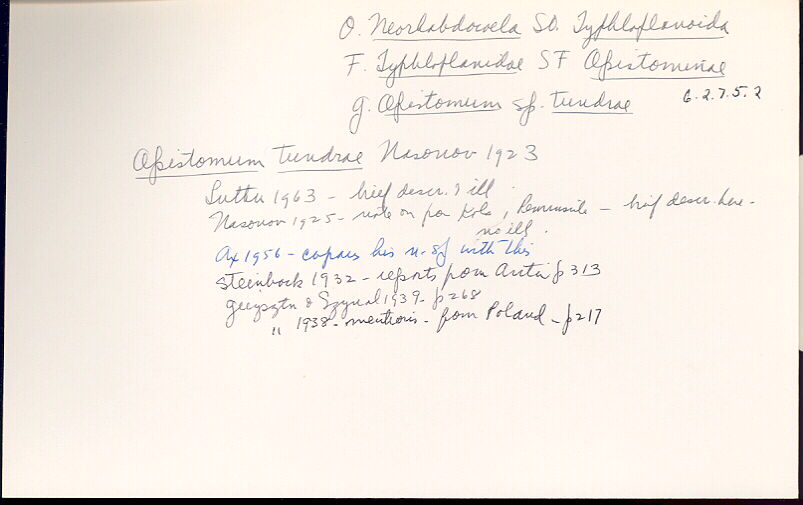 O. Neorhabdocoela SO. Typhloplanoida
F. Typhloplanidae SF Opistominae
g. Opistomum sp. tundrae 6.2.7.5.2
Opistomum tundrae Nasonov 1923
Luther 1963 - brief descr. & ill.
Nasonov 1925 - note on for Kola, Peninsula - brief descr. here -
no ill.
Ax 1956 - compares his n. sp with this
Steinbock 1932 - reports from p 313
& 1939 - p268
" 1938 - mentions - from Poland - p217